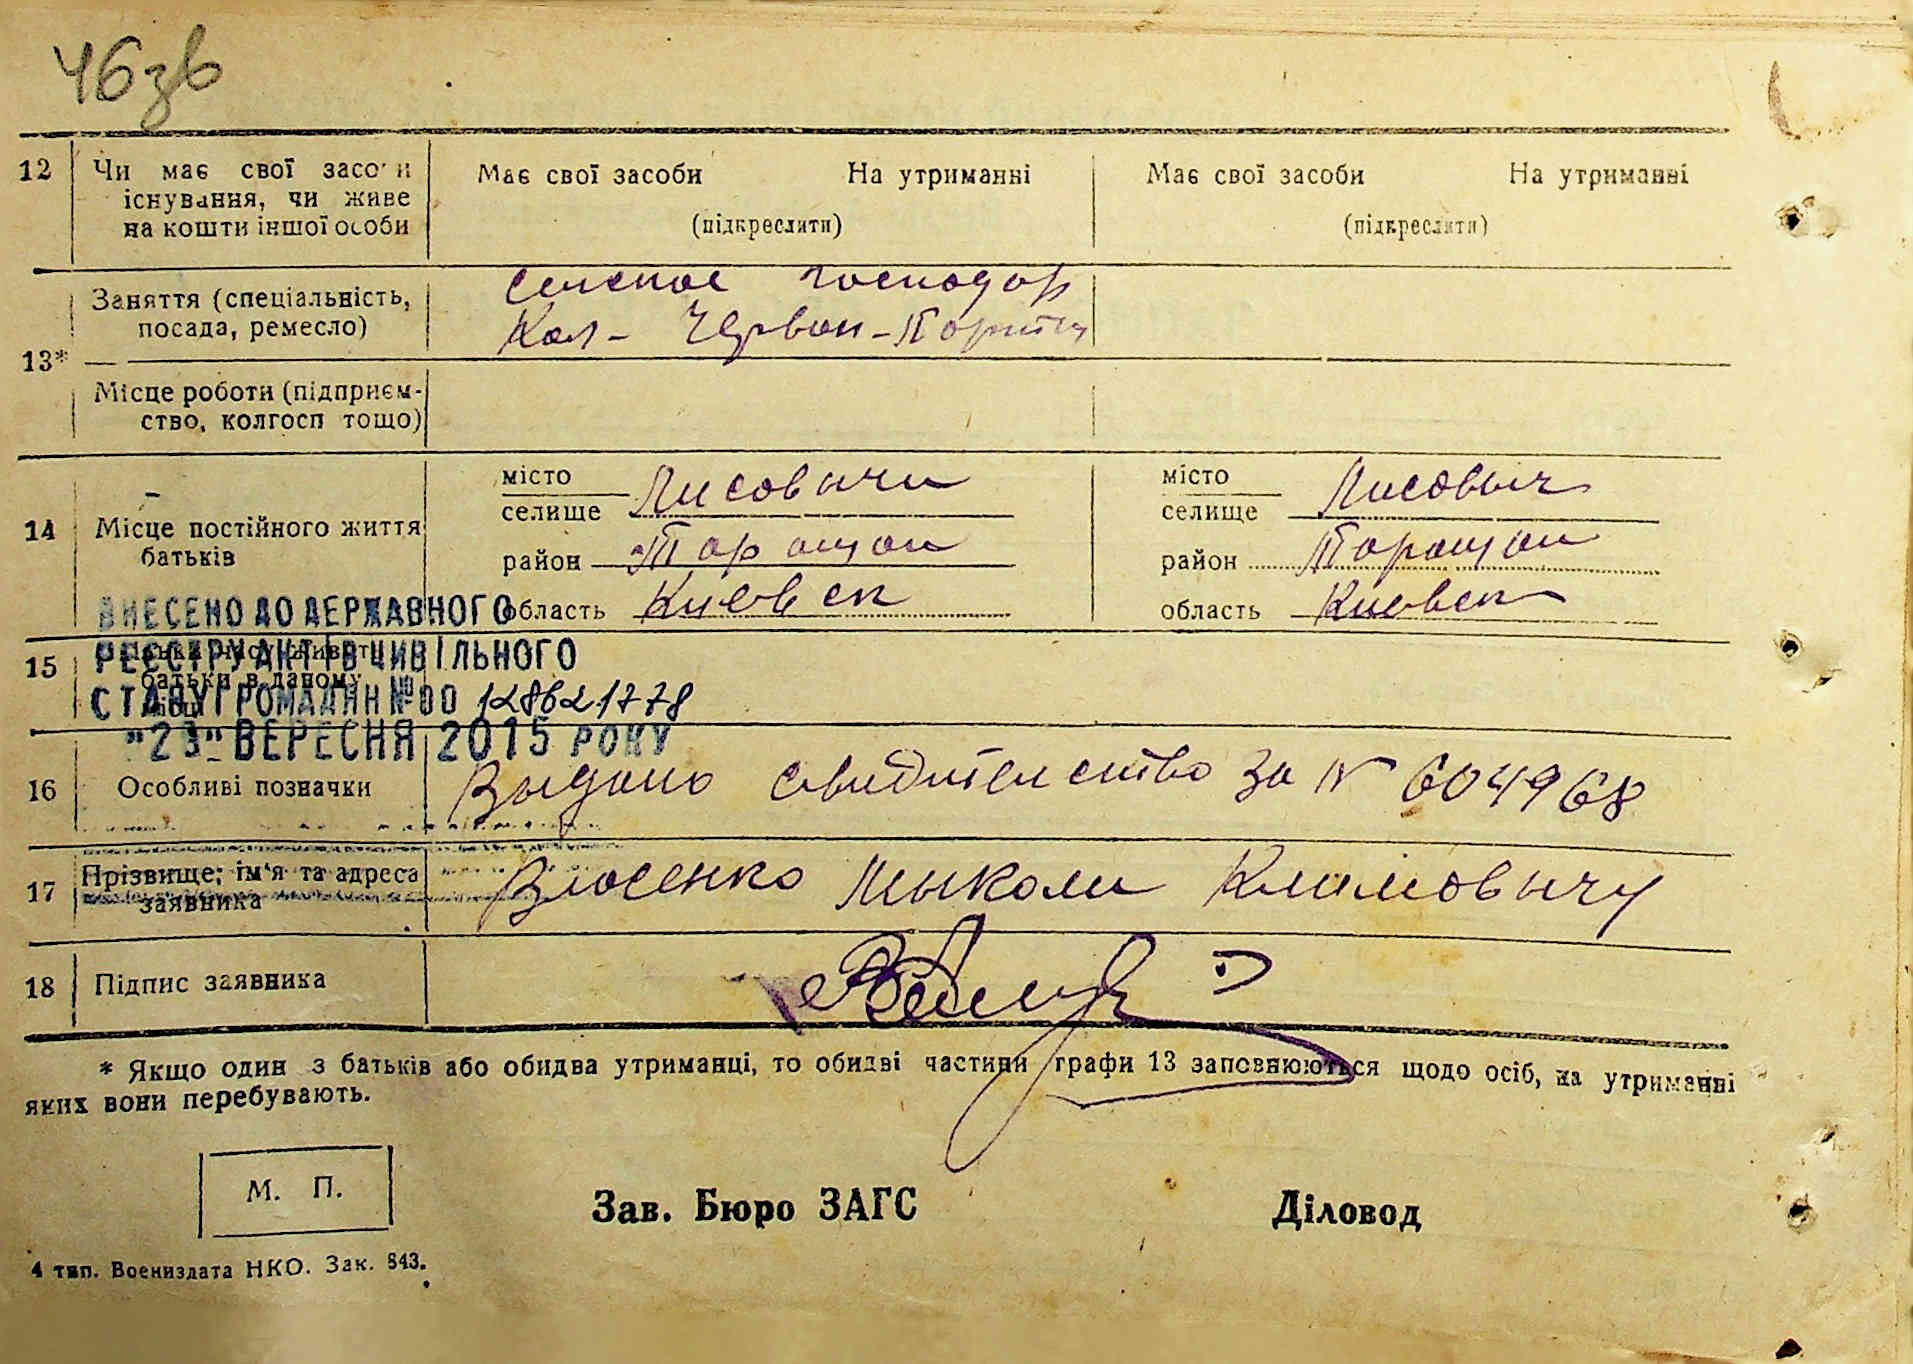 46зв
12 Чи має свої засоби Має свої засоби На утриманні Має свої засоби На утриманні
існування, чи живе
на кошти іншої особи (підкреслити) (підкреслити)
Заняття (спеціальність, селское господар
посада, ремесло) Кол- Червон-
13*
Місце роботи (підприєм-
ство, колгосп тощо)
місто Лисовычи місто Лисовыч
селище селище
14 Місце постійного життя район Таращан район Таращан
батьків
область Киевск область Киевск
ВНЕСЕНО ДО ДЕРЖАВНОГО
РЕЄСТРУ АКТІВ ЦИВІЛЬНОГО
15 батьки в даному
СТАНУ ГРОМАДЯН № 00 128621778
"23" ВЕРЕСНЯ 2015 РОКУ
16 Особливі позначки Выдано свидительство за № 604968
17 Прізвище, ім'я та адреса Власенко Мыколи Климовычу
заявника
18 Підпис заявника
* Якщо один з батьків або обидва утриманці, то обидві частини графи 13 заповнюються щодо осіб, на утриманні
яких вони перебувають.
М. П.
Зав. Бюро ЗАГС Діловод
4 тип. Воениздата НКО. Зак. 843.